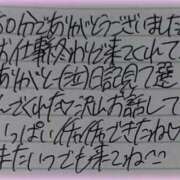 60分でありがとうございました
お仕事終わりで来てくれて
ありがと(空)日記見て選
んでくれたって沢山お話して
いっぱい仲できたねし
またいつでも来てね〜